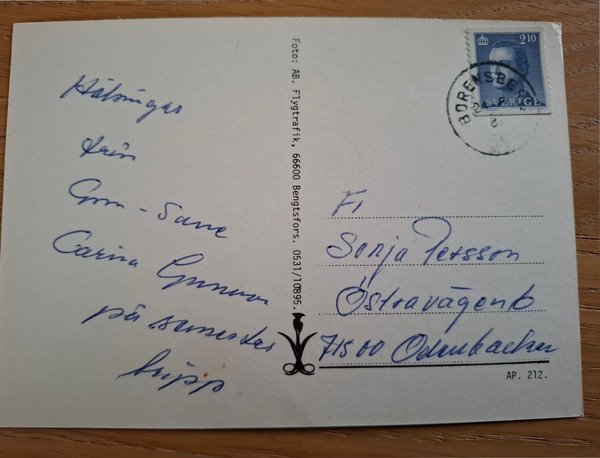 Hälsningar
från
Gun-Sure
Carina Gunnar
på semester
tripp
Foto: AB. Flygtrafik, 66600 Bengtsfors. 0531/10895.
2.10
SVERIGE
BORENSBERG
Fr
Sonja Persson
Östravägen 6
71500 Odensbacken
AP. 212.